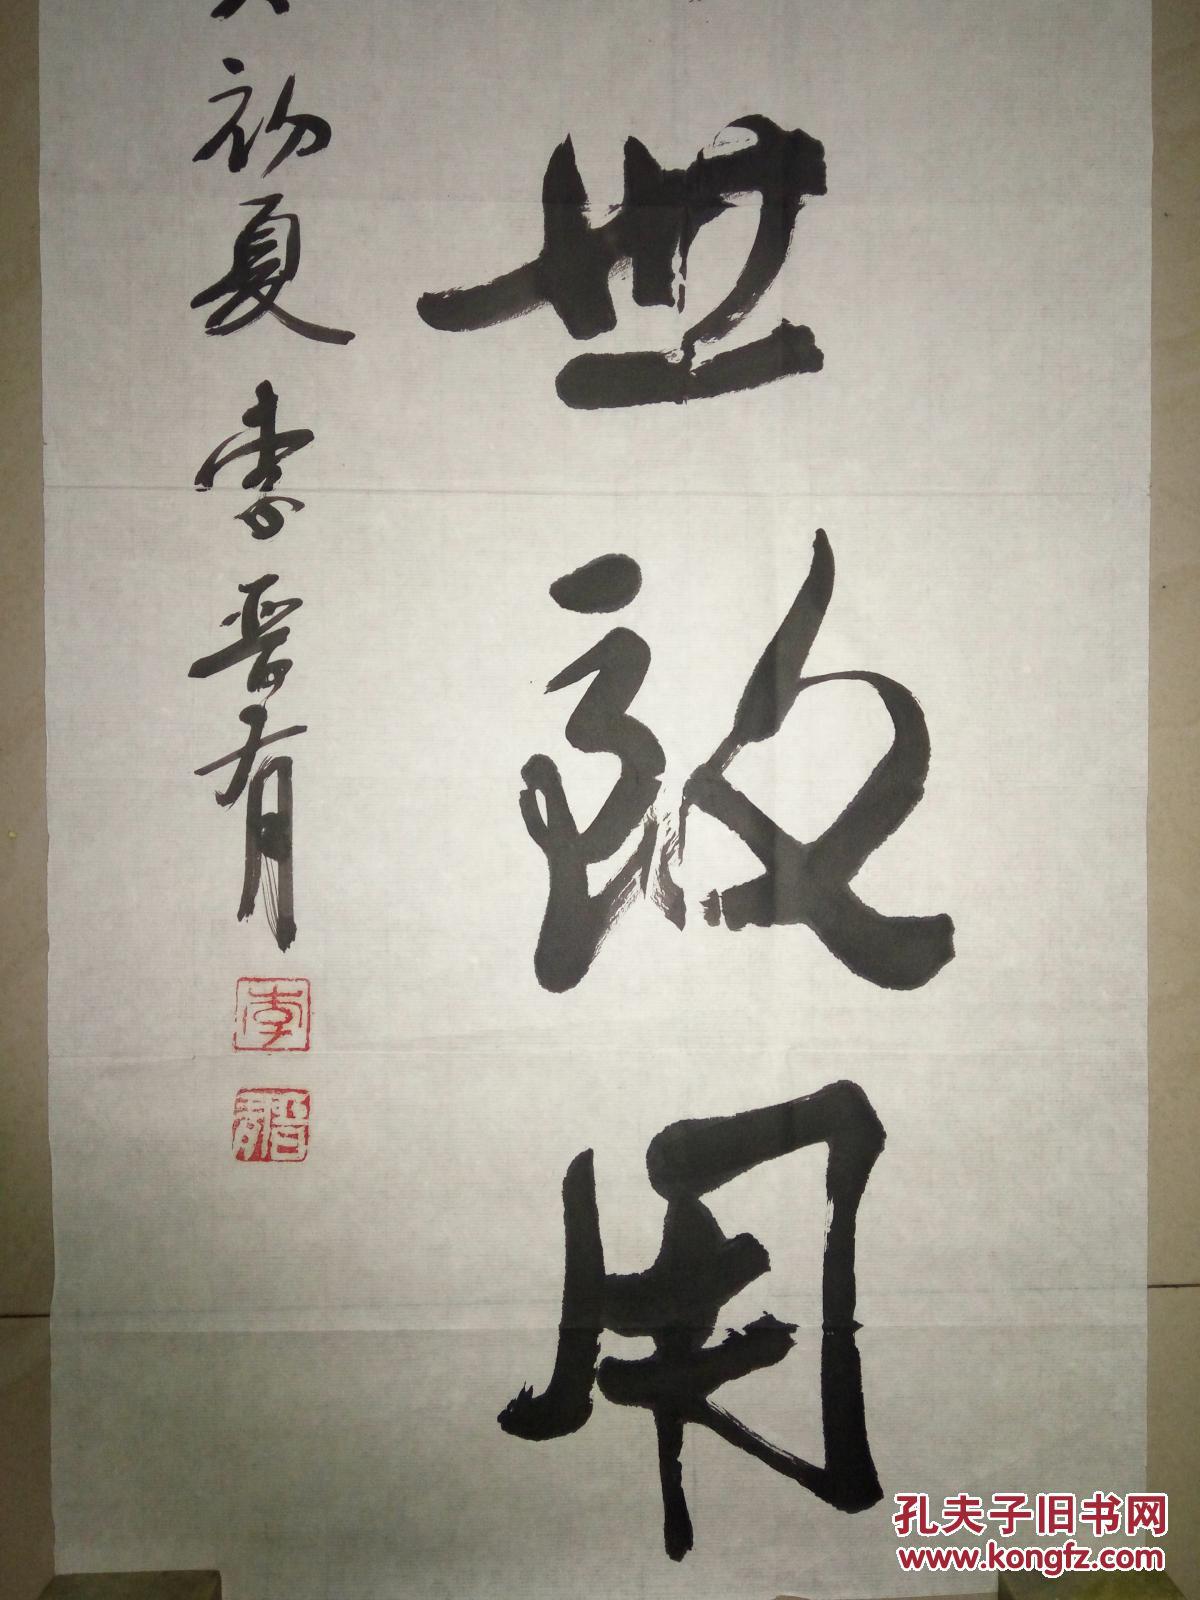 世致用
初夏 李晋有
李
晋有
孔夫子旧书网
www.kongfz.com